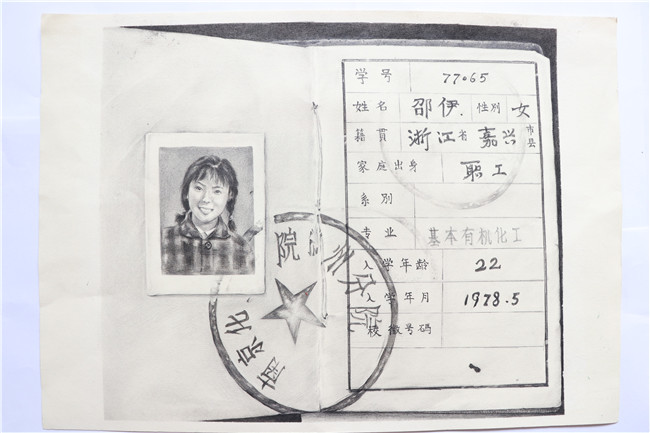 学号 77065
姓名 邵伊. 性別 女
籍貫 浙江省 嘉兴 市县
家庭出身 职工
系別
专业 基本有机化工
入学年龄 22
入学年月 1978.5
校徽号码
南京化 院 州分院